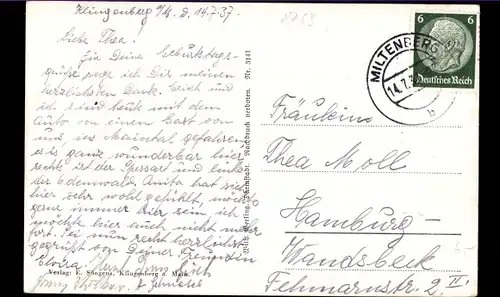 Klingenberg a/M. d. 14.7.37.
Liebe Thea!
Für Deine Geburtstags-
grüße sage ich Dir meinen
herzlichsten Dank. Erich und
ich sind heute mit dem
Auto von einem Gast von
uns, ins Maintal gefahren,
es ist ganz wunderbar hier
rechts ist der Spessart und links
der Odenwald. Anita hat sich
hier sehr wohl gefühlt, möchte
ganz immer hier sein ich
möchte hier auch nicht mehr
fort. Sei nun recht herzlichst
gegrüßt von Deiner Freundin
Elvira.
Verlag: E. Söngen, Klingenberg a. Main.
Nachdruck verboten. Nr. 3141
MILTENBERG
14.7.3
b
6 6
Deutsches Reich
Fräulein
Thea Moll
Hamburg-
Wandsbek
Fehmarnstr. 2 II